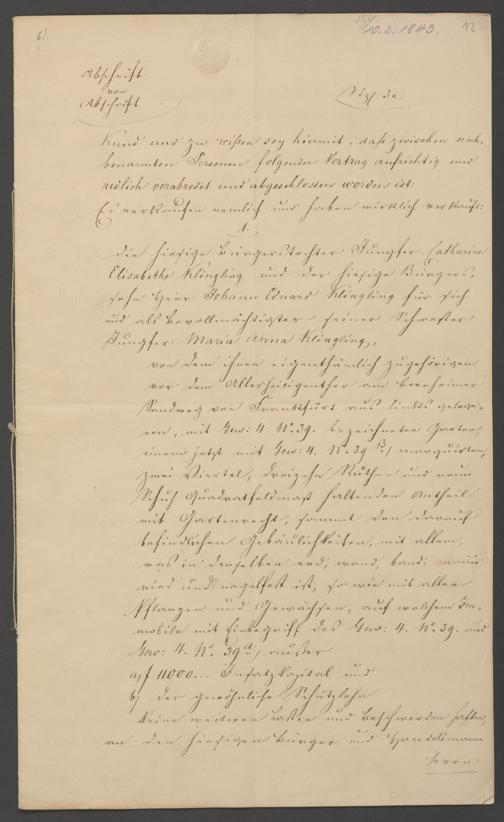 6).
10.2.1843.
12
Abschrift
von
Abschrift
Kund und zu wißen sey hiermit, daß zwischen nach-
benannten Personen folgender Vertrag aufrichtig und
redlich verabredet und abgeschlossen worden ist:
Es verkaufen nemlich und haben wirklich verkauft:
1.
die hiesige Bürgerstochter Jungfer Catharina
Elisabetha Klingling und der hiesige Bürgers-
sohn Herr Johann Eduard Klingling für sich
und als Bevollmächtigter seiner Schwester
Jungfer Maria Anna Klingling,
von dem ihnen eigenthümlich zugehörigen
vor dem Allerheiligenthor am Bornheimer
Sandweg von Frankfurt aus links gelege-
nen, mit Gew: 4. No. 39. bezeichneten Garten,
einem jetzt mit Gew: 4. No. 39 marquirten,
zwei Viertel, dreizehn Ruthen und neun
Schuh Quadratfeldmaß haltenden Antheil
mit Gartenrecht, sammt den darauf
befindlichen Gebäulichkeiten, mit allem,
was in denselben erd, wand, band,
nied und nagelfest ist, so wie mit allen
Pflanzen und Gewächsen, auf welchem Im-
mobile mit Einbegriff des Gew: 4. No. 39. und
Gew: 4. No. 39 außer
a/ f 11000. Insatzkapital und
b/ der gewöhnliche Schützlohn
keine weiteren Lasten und Beschwerden haften,
an den hiesigen Bürger und Handelsmann
Herrn